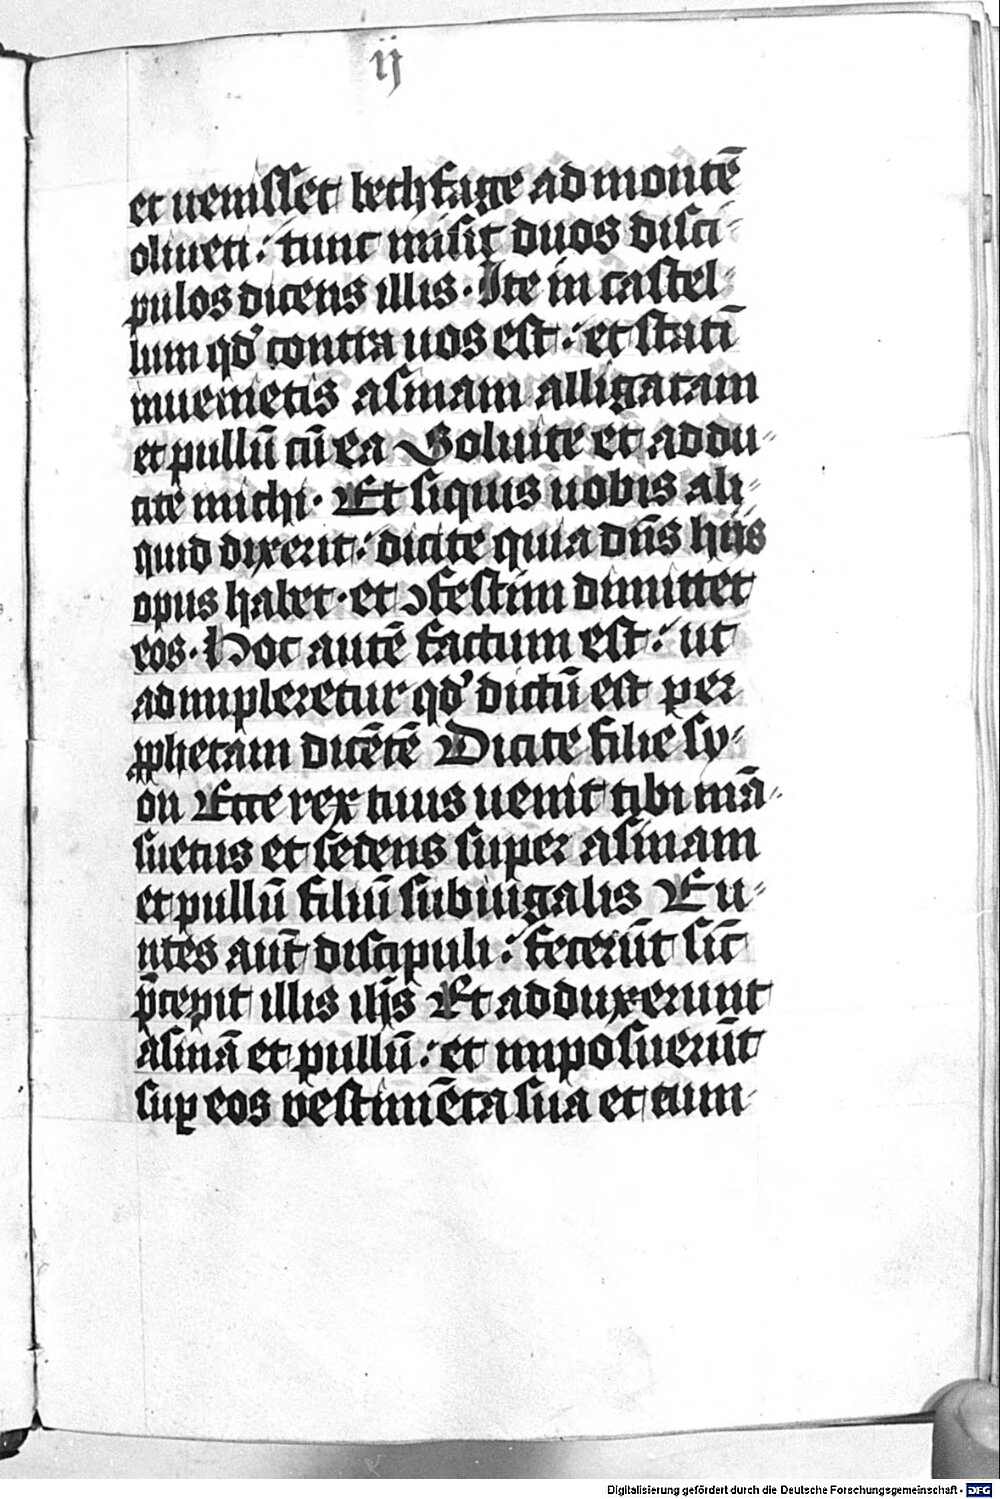 ij
et uenisset bethfage ad montē
oliueti: tunc misit duos disci-
pulos dicens illis. Ite in castel-
lum qd' contra uos est: et statī
inuenietis asinam alligatam
et pullū cū ea Soluite et addu-
cite michi. Et siquis uobis ali-
quid dixerit: dicite quia dn̄s hiis
opus habet. et ꝯfestim dimittet
eos. Hoc autē factum est: ut
adimpleretur qd' dictū est per
ꝓphetam dicētē Dicite filie sy-
on Ecce rex tuus uenit tibi mā-
suetus et sedens super asinam
et pullū filiū subiugalis Eu-
ntes aut̄ discipuli: fecerūt sic̄
p̄cepit illis ih̄s Et adduxerunt
asinā et pullū: et imposuerūt
suꝑ eos vestimēta sua et eum-
Digitalisierung gefördert durch die Deutsche Forschungsgemeinschaft - DFG